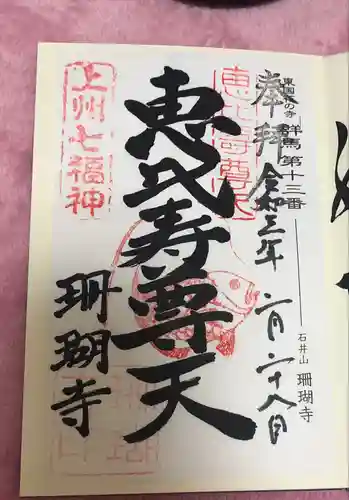 東国花の寺 群馬第十三番
石井山 珊瑚寺
奉拝 令和三年 二月二十八日
恵比寿尊天
恵比寿尊天
上州七福神
珊瑚寺